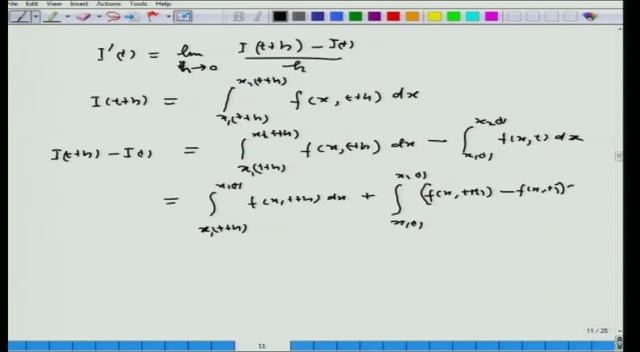 File Edit View Insert Actions Tools Help
I'(t) = lim h→0 (I(t+h) − I(t)) / h
I(t+h) = ∫_{x₁(t+h)}^{x₂(t+h)} f(x, t+h) dx
I(t+h) − I(t) = ∫_{x₁(t+h)}^{x₂(t+h)} f(x, t+h) dx − ∫_{x₁(t)}^{x₂(t)} f(x, t) dx
= ∫_{x₁(t+h)}^{x₁(t)} f(x, t+h) dx + ∫_{x₁(t)}^{x₂(t)} (f(x, t+h) − f(x, t))
11 / 25
11